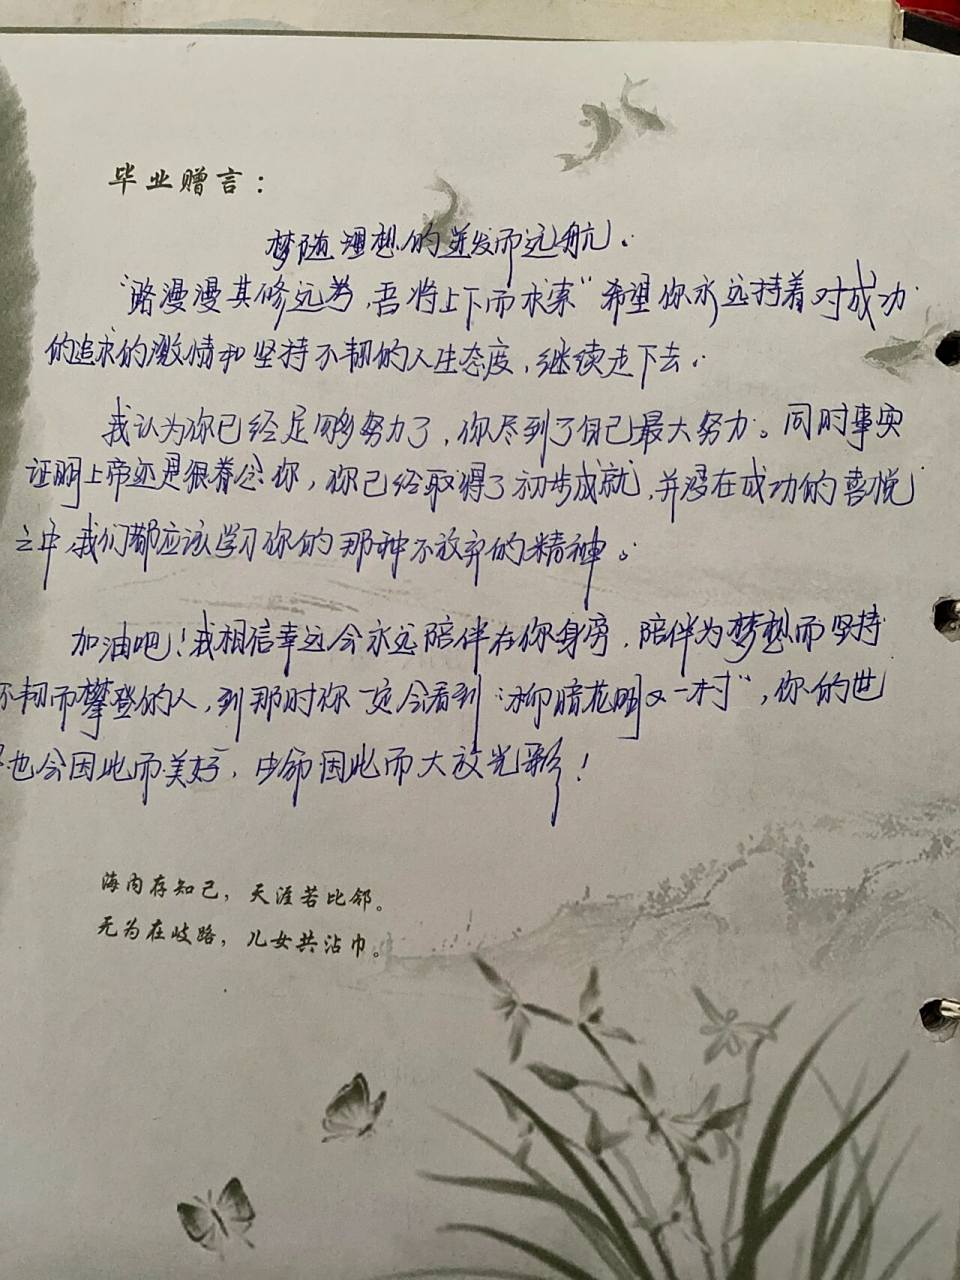 毕业赠言：
梦随理想的迸发而远航.
"路漫漫其修远兮,吾将上下而求索"希望你永远持着对成功
的追求的激情和坚持不韧的人生态度,继续走下去.
我认为你已经足够努力了,你尽到了自己最大努力。同时事实
证明上帝还是很眷念你,你已经取得了初步成就,并浸在成功的喜悦
之中,我们都应该学习你的那种不放弃的精神。
加油吧!我相信幸运会永远陪伴在你身旁,陪伴为梦想而坚持
不韧而攀登的人,到那时你一定会看到"柳暗花明又一村",你的世
也会因此而美好,步命因此而大放光彩!
海内存知己，天涯若比邻。
无为在歧路，儿女共沾巾。